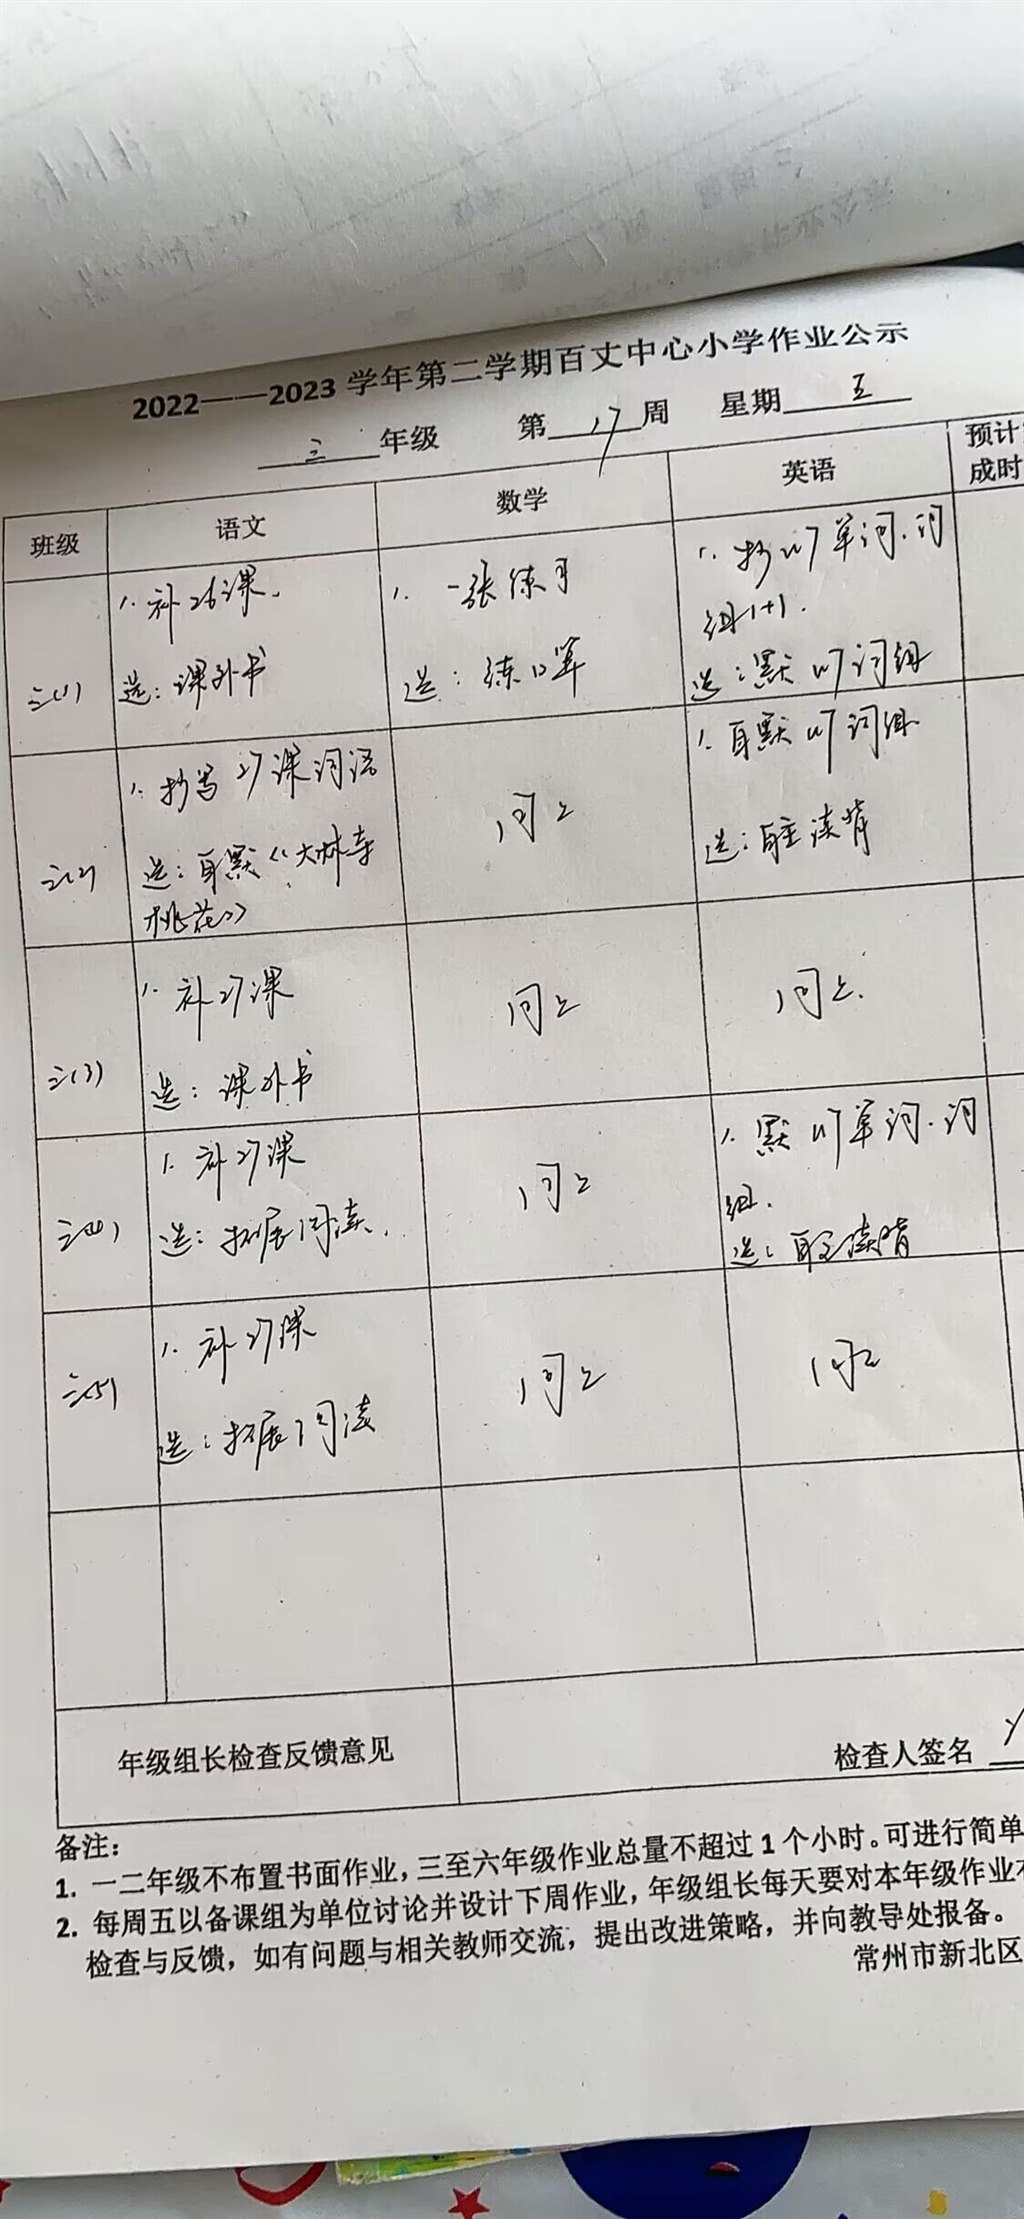 2022——2023 学年第二学期百丈中心小学作业公示
三 年级 第 17 周 星期 五
班级 语文 数学 英语 预计
成时
三(1)
1. 补26课.
选：课外书
1. 一张练习
选：练口算
1. 抄U7单词.词
组1+1.
选：默U7词组
三(2)
1. 抄写27课词语
选：自默《大林寺
桃花》
同上
1. 自默U7词组
选：自主读背
三(3)
1. 补27课
选：课外书
同上
同上.
三(4)
1. 补27课
选：拓展阅读.
同上
1. 默U7单词.词
组.
选：自主读背
三(5)
1. 补27课
选：拓展阅读
同上
同上
年级组长检查反馈意见
检查人签名
备注：
1. 一二年级不布置书面作业，三至六年级作业总量不超过 1 个小时。可进行简单
2. 每周五以备课组为单位讨论并设计下周作业，年级组长每天要对本年级作业
检查与反馈，如有问题与相关教师交流，提出改进策略，并向教导处报备。
常州市新北区